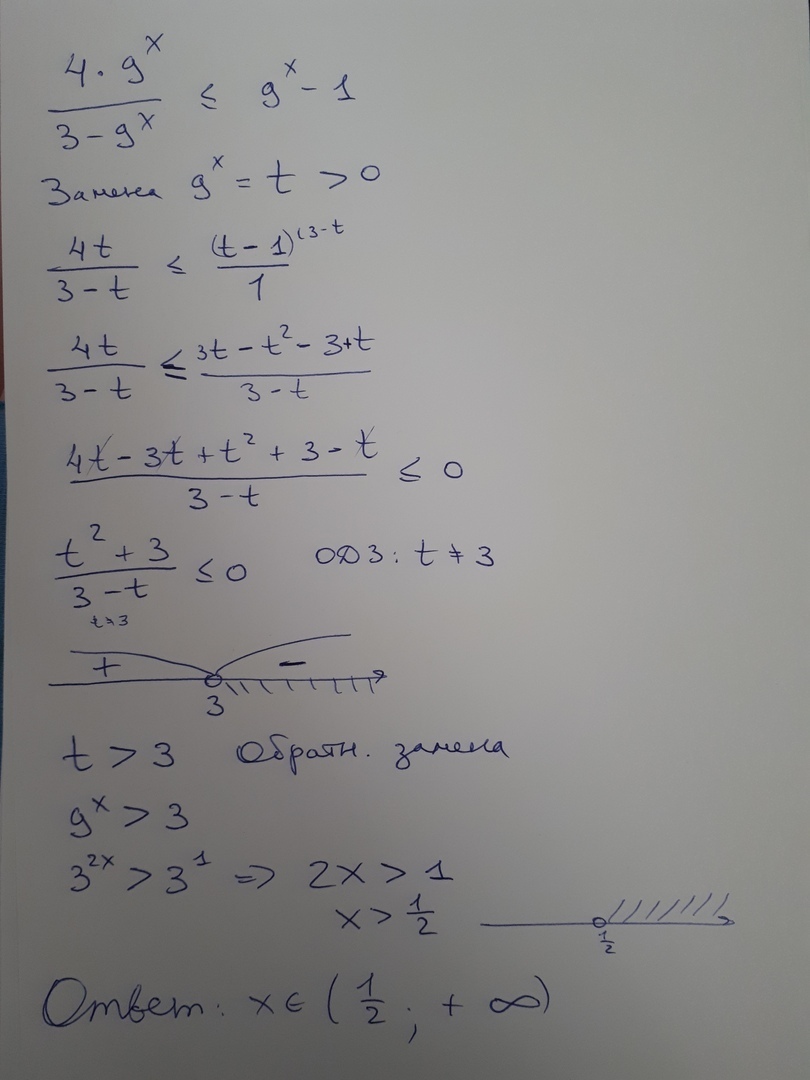 4 · 9^x / (3 - 9^x) ≤ 9^x - 1
Замена 9^x = t > 0
4t / (3 - t) ≤ (t - 1)^(3-t / 1
4t / (3 - t) ≤ (3t - t² - 3 + t) / (3 - t)
(4t - 3t + t² + 3 - t) / (3 - t) ≤ 0
(t² + 3) / (3 - t) ≤ 0 ОДЗ: t ≠ 3
t ≠ 3
+ -
3
t > 3 Обратн. замена
9^x > 3
3^2x > 3^1 => 2x > 1
x > 1/2
1/2
Ответ: x ∈ (1/2 ; + ∞)